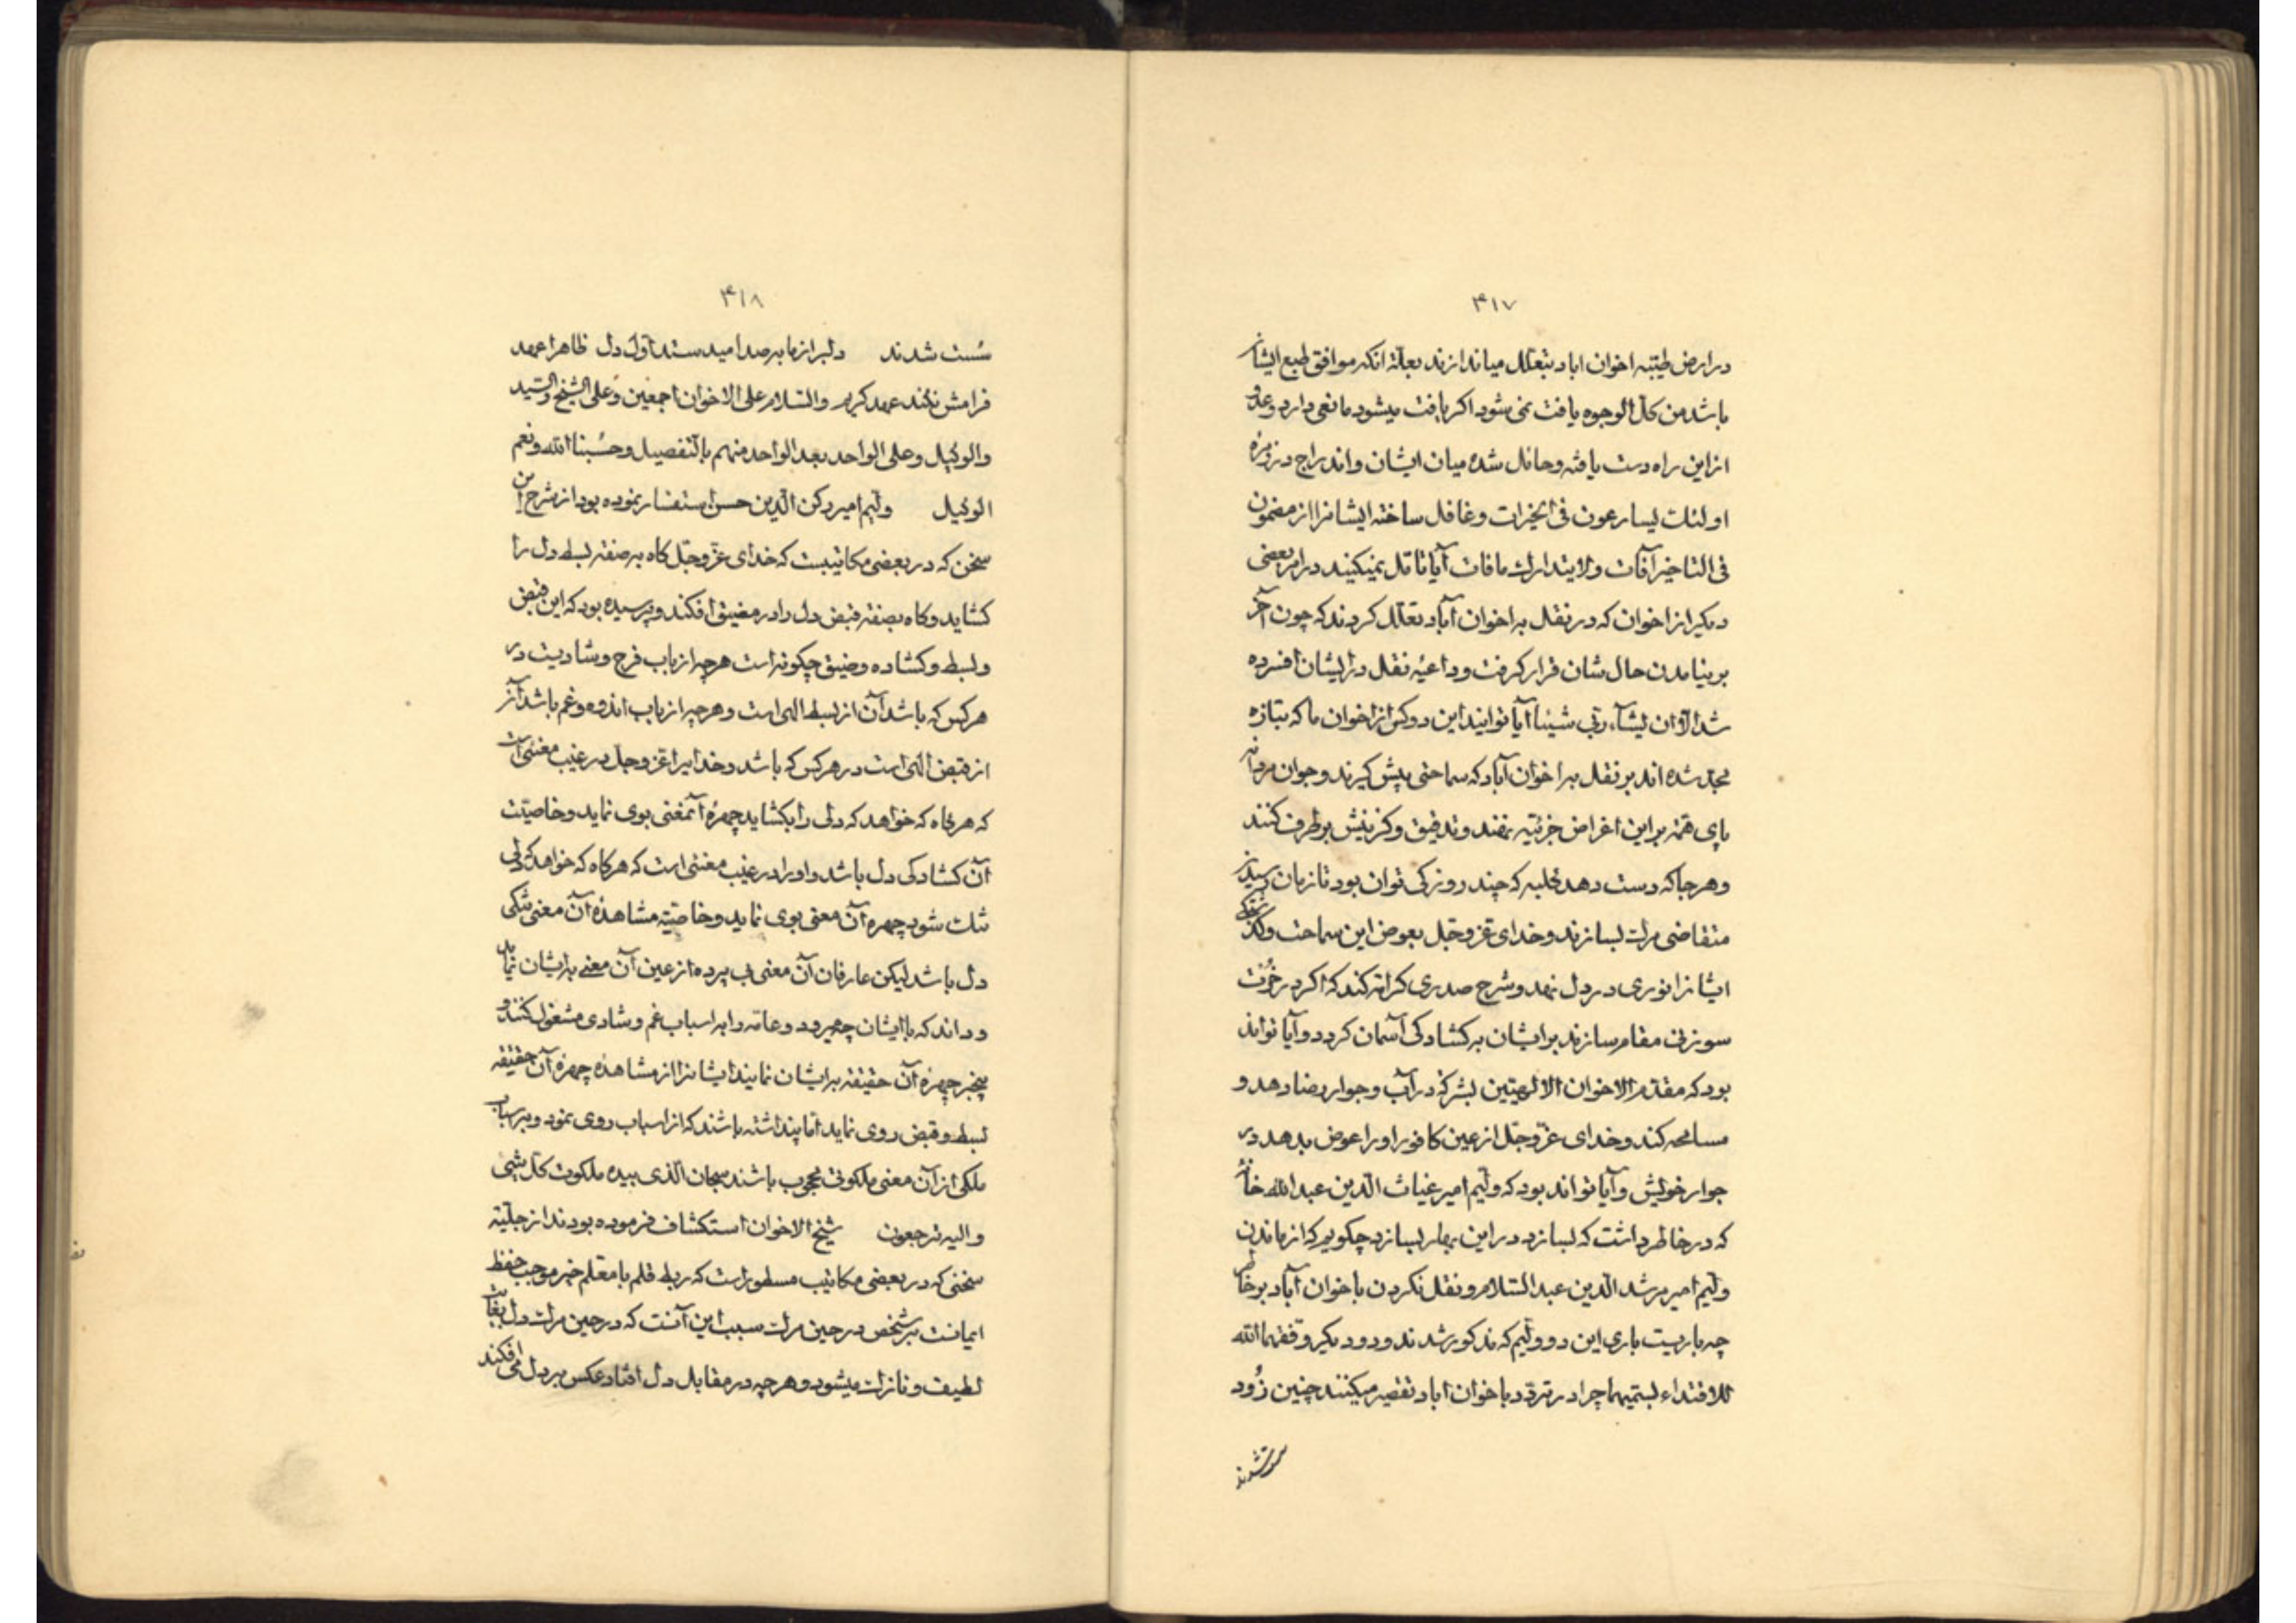 ۴۱۷
در ارض طیّبه اخوان اباد بتعلّل میاندازند بعلّة انکه موافق طبع ایشان
باشد من کلّ الوجوه یافت نمی شود اکر یافت میشود مانعی دارد وعدو
از این راه دست یافته وحائل شده میان ایشان واندراج در زمرهٔ
اولئك یسارعون فی الخیرات وغافل ساخته ایشانرا از مضمون
فی التاخیر آفات ولا یتدارك مافات آیا تامّل نمیکنید در امر بعضی
دیکر از اخوان که در نقل به اخوان آباد تعلّل کردند که چون آخر
بر نیامدن حال شان قرار کرفت وداعیهٔ نقل در ایشان افسرده
شد الّا ان یشآء ربّی شیئا آیا توانند این دوکس از اخوان ما که بتازه
مجدّ شده اند بر نقل به اخوان آباد که سماحتی پیش کیرند وجوان مردانه
پای همّة بر این اغراض جزئیّه نهند وتدقیق وکزینش برطرف کنند
وهرجا که دست دهد که چند روزکی توان بود تا زمان رسیدن
متقاضی مرك بسازند وخدای عزّ وجلّ بعوض این سماحت
ایشانرا نوری در دل نهد وشرح صدری کرامة کند که اکر در
سوزنی مقام سازند بر ایشان به کشادکی آسمان کردد وآیا تواند
بود که مقدّم الاخوان الالهیّین بشرکة در آب وجوار رضا دهد و
مسامحه کند وخدای عزّ وجلّ از عین کافور اورا عوض بدهد در
جوار خویش وآیا تواند بود که ولیّم امیر غیاث الدّین عبد الله خانهٔ
که در خاطر داشت که بسازد در این بهار بسازد چکویم که از ماندن
ولیّم امیر مرشد الدّین عبد السّلام ونقل نکردن باخوان آباد بر خاطر
چه باریست باری این دو ولیّم که مذکور شدند ودو دیکر وفّقهما الله
للاقتداء بستمیهما چرا در تردّد باخوان اباد تقصیر میکنند چنین زُود
سست شدند
۴۱۸
سُست شدند دلبر از ما به صد امید ستد اوّل دل ظاهرا عهد
فرامش نکند عهد کریم والسّلام علی الاخوان اجمعین وَعلی الشّیخ والسّید
والوکیل وعلی الواحد بعد الواحد منهم بالتّفصیل وحَسْبنا الله ونعم
الوکیل ولیّم امیر رکن الدّین حسن استفسار نموده بود از شرح این
سخن که در بعضی مکاتیبست که خدای عزّ وجلّ کاه به صفة بسط دل را
کشاید وکاه بصفة قبض دل را در مضیق افکند وپرسیده بود که این قبض
وبسط وکشاده وضیق چکونه است هرچه از باب فرح وشادیست در
هرکس که باشد آن از بسط الهی است وهرچه از باب اندوه وغم باشد آن
از قبض الهی است در هرکس که باشد وخدایرا عزّ وجلّ در غیب معنئی است
که هرکاه که خواهد که دلی را بکشاید چهرهٔ آنمعنی بوی نماید وخاصیّت
آن کشادکی دل باشد واورا در غیب معنئی است که هرکاه که خواهد که دلی
تنك شود چهره آن معنی بوی نماید وخاصّیة مشاهدهٔ آن معنی تنکی
دل باشد لیکن عارفان آن معنی بی پرده از عین آن معنی به ایشان نماید
وداند که با ایشان چه میرود وعامّه را به اسباب غم وشادی مشغول کنند و
چهرهٔ آن حقیقة به ایشان نمایند ایشانرا از مشاهدهٔ چهرهٔ آن حقیقة
بسط وقبض روی نماید امّا پنداشته باشند که از اسباب روی نمود
ملکی از آن معنی ملکوتی محجوب باشند سبحان الّذی بیده ملکوت کلّ شیئ
والیه ترجعون شیخ الاخوان استکشاف فرموده بودند از جلیّة
سخنی که در بعضی مکاتیب مسطور است که ربط قلم با معلّم خیر موجب حفظ
ایمانست بر شخص در حین مرك سبب این آنست که در حین مرك دل بغایت
لطیف ونازك میشود وهرچه در مقابل دل افتاد عکس بر دل می افکند